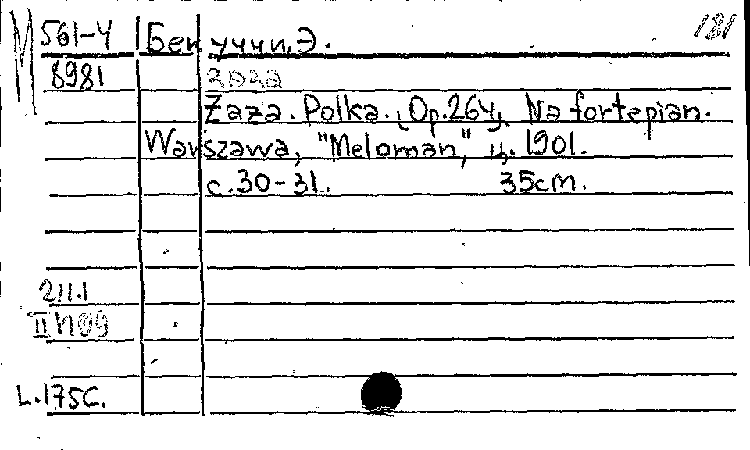 М 561-4 Бенуччи, Э. 181
8981 Заза
Zaza. Polka. Op. 264. Na fortepian.
Warszawa, "Meloman", ц. 1901.
с. 30-31. 35cm.
211.1
II
L.175C.